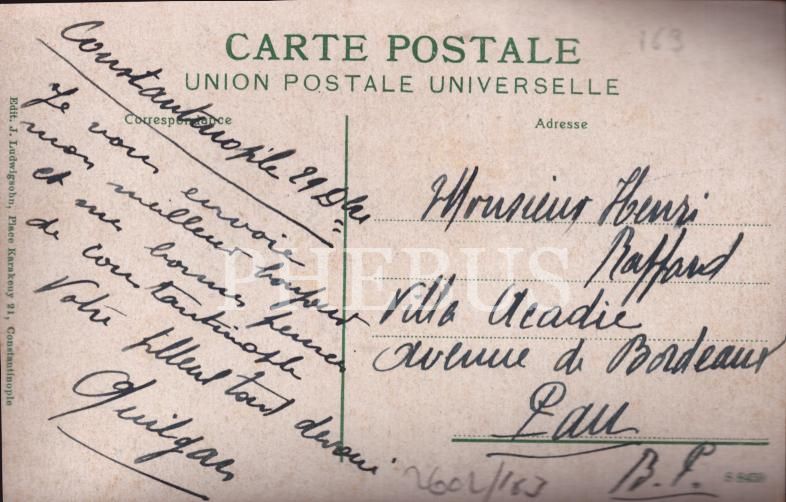 CARTE POSTALE
UNION POSTALE UNIVERSELLE
Correspondance
Adresse
Constantinople 29 Dbre
Je vous envoie
mon meilleur bonjour
et me bonnes pensées
de constantinople
Votre filleul tout dévoué
Monsieur Henri
Raffard
Villa Acadie
avenue de Bordeaux
Pau
B. P.
Edit. J. Ludwigsohn, Place Karakeuy 21, Constantinople
PHEBUS
163
2602/163